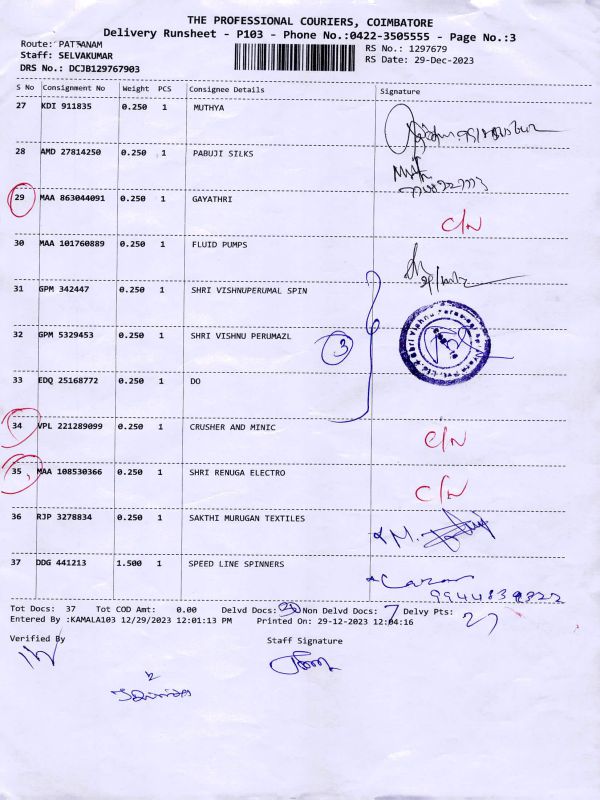 THE PROFESSIONAL COURIERS, COIMBATORE
Delivery Runsheet - P103 - Phone No.:0422-3505555 - Page No.:3
Route: PATTANAM
RS No.: 1297679
Staff: SELVAKUMAR
RS Date: 29-Dec-2023
DRS No.: DCJB129767903
S No Consignment No Weight PCS Consignee Details Signature
27 KDI 911835 0.250 1 MUTHYA
28 AMD 27814250 0.250 1 PABUJI SILKS
29 MAA 863044091 0.250 1 GAYATHRI
C/N
30 MAA 101760889 0.250 1 FLUID PUMPS
31 GPM 342447 0.250 1 SHRI VISHNUPERUMAL SPIN
32 GPM 5329453 0.250 1 SHRI VISHNU PERUMAZL
3
33 EDQ 25168772 0.250 1 DO
34 VPL 221289099 0.250 1 CRUSHER AND MINIC
C/N
35 MAA 108530366 0.250 1 SHRI RENUGA ELECTRO
C/N
36 RJP 3278834 0.250 1 SAKTHI MURUGAN TEXTILES
37 DDG 441213 1.500 1 SPEED LINE SPINNERS
Tot Docs: 37 Tot COD Amt: 0.00 Delvd Docs: Non Delvd Docs: 7 Delvy Pts: 27
Entered By :KAMALA103 12/29/2023 12:01:13 PM Printed On: 29-12-2023 12:04:16
Verified By Staff Signature